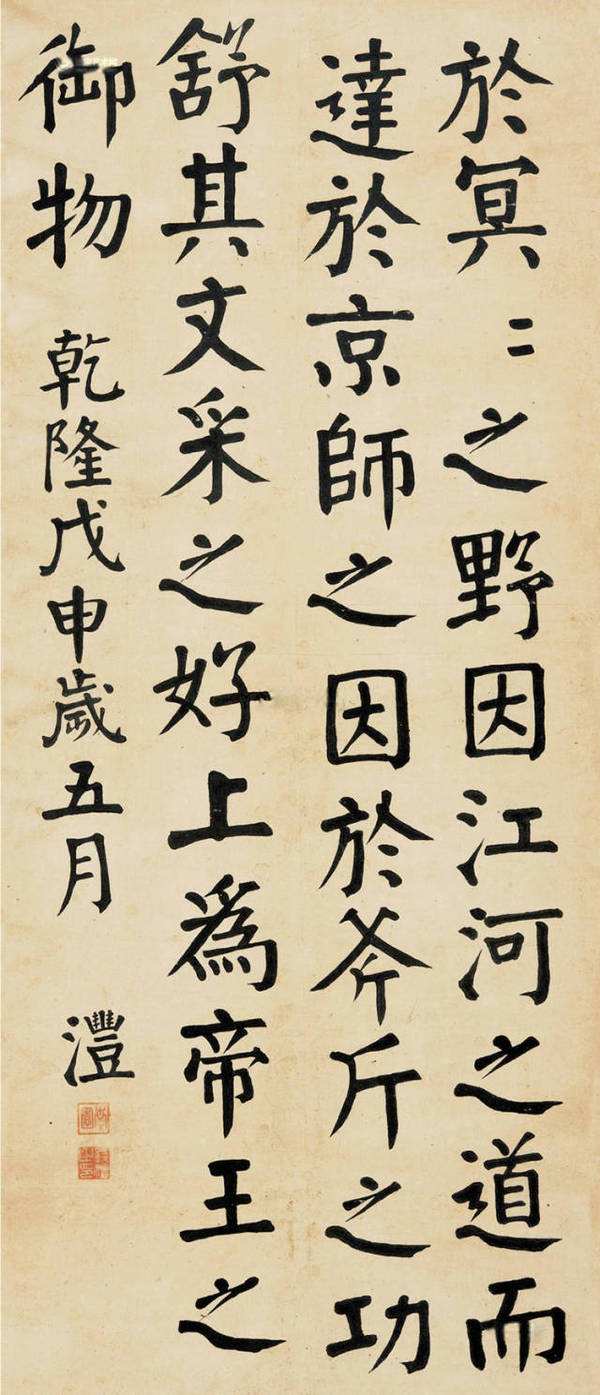 於冥〻之野因江河之道而
達於京師之因於斧斤之功
舒其文采之好上為帝王之
御物 乾隆戊申歲五月 灃